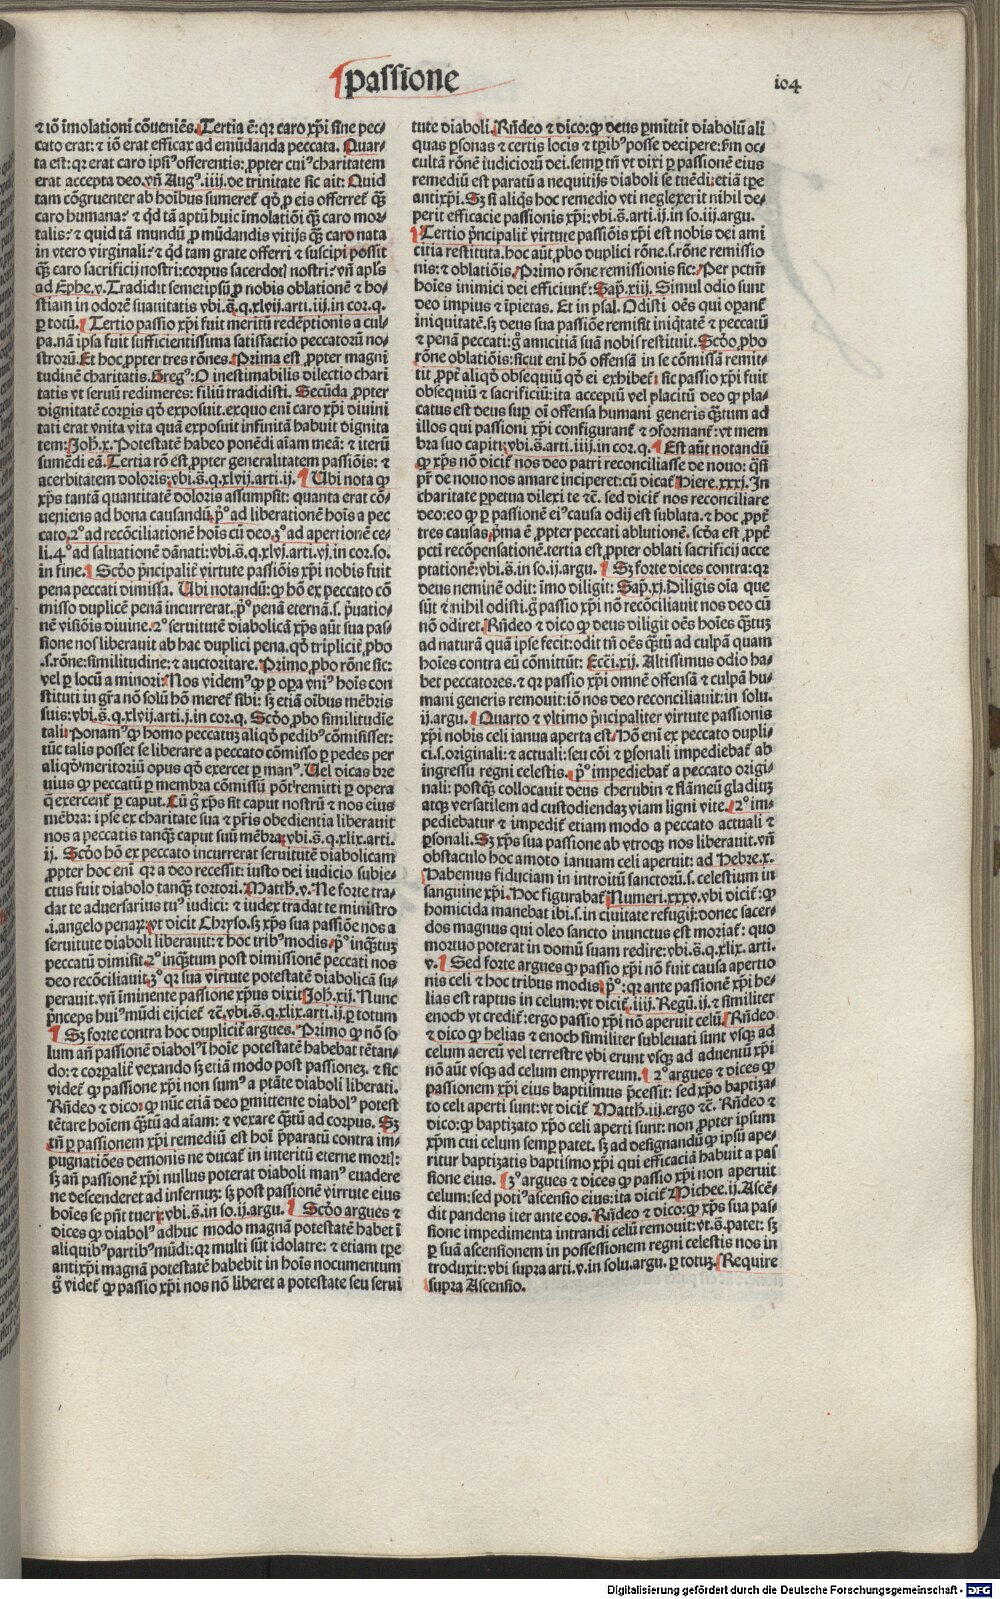 passione
104
⁊ iõ īmolationi cõueniẽs. Tertia ẽ: qr caro xp̄i sine pec⸗
cato erat: ⁊ iõ erat efficax ad emũdanda peccata. Quar⸗
ta est: qr erat caro ipsiꝰ offerentis: ꝓpter cuiꝰ charitatem
erat accepta deo. vñ Augꝰ. iiij. de trinitate sic ait: Quid
tam cõgruenter ab hoĩbus sumeret͛ qð ꝓ eis offerret͛ q̃ꝫ
caro humana? ⁊ qd tã aptũ huic ĩmolatiõi q̃ꝫ caro mor⸗
talis? ⁊ quid tã mundũ ꝓ mũdandis vitijs q̃ꝫ caro nata
in vtero virginali? ⁊ qd tam grate offerri ⁊ suscipi possit
q̃ꝫ caro sacrificij nostri: corpus sacerdot; nostri? vñ apl̃s
ad Ephe. v. Tradidit semetipsũ ꝓ nobis oblationẽ ⁊ ho⸗
stiam in odorẽ suauitatis vbi. s̃. q. xlvij. arti. iij. in cor. q.
ꝑ totũ. ¶ Tertio passio xp̄i fuit meritũ redẽptionis a cul⸗
pa. nã ipsa fuit sufficientissima satisfactio peccatorũ no⸗
strorũ. Et hoc ꝓpter tres rõnes. Prima est ꝓpter magni
tudinẽ charitatis. Gregꝰ: O inestimabilis dilectio chari
tatis vt seruũ redimeres: filiũ tradidisti. Secũda ꝓpter
dignitatẽ corꝑis qð exposuit. exquo eni̇̃ caro xp̄i diuini
tati erat vnita vita quã exposuit infinitã habuit dignita
tem: Joh̃. x. Potestatẽ habeo ponẽdi aĩam meã: ⁊ iterũ
sumẽdi eã. Tertia rõ est ꝓpter generalitatem passiõis: ⁊
acerbitatem doloris: vbi. s̃. q. xlvij. arti. ij. ¶ Ubi nota ꝙ
xp̄s tantã quantitatẽ doloris assumpsit: quanta erat cõ⸗
ueniens ad bona causandũ. p̊ ad liberationẽ hoĩs a pec
cato. 2ꝰ ad recõciliationẽ hoĩs cũ deo. 3ꝰ ad apertionẽ ce⸗
li. 4ꝰ ad saluationẽ dãnati: vbi. s̃. q. xlvj. arti. vj. in cor. so.
in fine. ¶ Scðo p̃ncipaliẽ virtute passiõis xp̄i nobis fuit
pena peccati dimissa. Ubi notandũ: ꝙ hõ ex peccato cõ
misso duplicẽ penã incurrerat. p̊ penã eternã. s. p̃uatio⸗
nẽ visiõis diuine. 2ꝰ seruitutẽ diabolicã xp̄s aũt sua pas⸗
sione nos liberauit ab hac duplici pena. qð triplicit͛ ꝓbo
.s. rõne: similitudine: ⁊ auctoritate. Primo ꝓbo rõne sic:
vel ꝑ locũ a minori: Nos videmꝰ ꝙ ꝑ oꝑa vniꝰ hoĩs con
stituti in gr̃a nõ solũ hõ meret͛ sibi: sꝫ etiã oĩbus mẽbris
suis: vbi. s̃. q. xlvij. arti. j. in cor. q. Scðo ꝓbo similitudĩe
tali: Ponamꝰ ꝙ homo peccatuꝫ aliqð pedibꝰ cõmisisset:
tũc talis posset se liberare a peccato cõmisso ꝑ pedes per
aliqð meritoriũ opus qð exercet ꝑ manꝰ. Uel dicas bre
uius ꝙ peccatũ ꝑ membra cõmissũ põt remitti ꝑ opera
q̃ exercent͛ ꝑ caput. Cũ g̊ xp̄s sit caput nostrũ ⁊ nos eius
mẽbra: ipse ex charitate sua ⁊ pr̃is obedientia liberauit
nos a peccatis tanq̃ꝫ caput suũ mẽbra: vbi. s̃. q. xlix. arti.
ij. Scðo hõ ex peccato incurrerat seruitutẽ diabolicam
ꝓpter hoc eni̇̃ qr a deo recessit: iusto dei iudicio subie⸗
ctus fuit diabolo tanq̃ꝫ tortori. Matth̃. v. Ne forte tra⸗
dat te aduersarius tuꝰ iudici: ⁊ iudex tradat te ministro
.i. angelo penaꝝ: vt dicit Chryso. sꝫ xp̄s sua passiõe nos a
seruitute diaboli liberauit: ⁊ hoc tribꝰ modis. p̊ inq̃ꝫtuꝫ
peccatũ dimisit. 2ꝰ inq̃ꝫtum post dimissionẽ peccati nos
deo recõciliauit. 3ꝰ qr sua virtute potestatẽ diabolicã su⸗
perauit. vñ ĩminente passione xp̄us dixit Joh̃. xij. Nunc
p̃nceps huiꝰ mũdi eijciet͛ ⁊c̃. vbi. s̃. q. xlix. arti. ij. ꝑ totum
¶ Sꝫ forte contra hoc dupliciẽ argues. Primo ꝙ nõ so
lum añ passionẽ diabolꝰ ĩ hoĩe potestatẽ habebat tẽtan⸗
do: ⁊ corꝑalit͛ vexando sꝫ etiã modo post passioneꝫ. ⁊ sic
videt͛ ꝙ passione xp̄i non sumꝰ a ptãte diaboli liberati.
Rñdeo ⁊ dico: ꝙ nũc etiã deo ꝑmittente diabolꝰ potest
tẽtare hoĩem q̃ꝫtũ ad aĩam: ⁊ vexare q̃ꝫtũ ad corpus. Sꝫ
tñ ꝑ passionem xp̄i remediũ est hoĩ p̃paratũ contra im⸗
pugnatiões demonis ne ducat͛ in interitũ eterne mort;:
sꝫ añ passionẽ xp̄i nullus poterat diaboli manꝰ euadere
ne descenderet ad infernuꝫ: sꝫ post passionẽ virrute eius
hoĩes se pñt tueri: vbi. s̃. in so. ij. argu. ¶ Scðo argues ⁊
dices ꝙ diabolꝰ adhuc modo magnã potestatẽ habet ĩ
aliquibꝰ partibꝰ mũdi: qr multi sũt idolatre: ⁊ etiam tꝑe
antixp̄i magnã potestatẽ habebit in hoĩs nocumentum
g̊ videt͛ ꝙ passio xp̄i nos nõ liberet a potestate seu serui
tute diaboli. Rñdeo ⁊ dico: ꝙ deus ꝑmittit diabolũ ali
quas ꝑsonas ⁊ certis locis ⁊ tꝑibꝰ posse decipere: ẜm oc⸗
cultã rõnẽ iudiciorũ dei. semꝑ tñ vt dixi ꝑ passionẽ eius
remediũ est paratũ a nequitijs diaboli se tuẽdi: etiã tꝑe
antixp̄i. Sꝫ si aliq̃s hoc remedio vti neglexerit nihil de⸗
perit efficacie passionis xp̄i: vbi. s̃. arti. ij. in so. iij. argu.
¶ Tertio p̃ncipaliẽ virtute passiõis xp̄i est nobis dei ami
citia restituta. hoc aũt ꝓbo duplici rõne. s. rõne remissio
nis: ⁊ oblatiõis. Primo rõne remissionis sic: Per pctm̃
hoĩes inimici dei efficiunt͛: Sap̃. xiij. Simul odio sunt
deo impius ⁊ ĩpietas. Et in psal. Odisti oẽs qui oꝑant͛
iniquitatẽ. sꝫ deus sua passiõe remisit iniq̃tatẽ ⁊ peccatũ
⁊ penã peccati: g̊ amicitiã suã nobis restituit. Scðo ꝓbo
rõne oblatiõis: sicut eni̇̃ hõ offensã in se cõmissã remit⸗
tit ꝓpt͛ aliqð obsequiũ qð ei exhibet͛: sic passio xp̄i fuit
obsequiũ ⁊ sacrificiũ: ita acceptũ vel placitũ deo ꝙ pla⸗
catus est deus suꝑ oĩ offensa humani generis q̃ꝫtum ad
illos qui passioni xp̄i configurant͛ ⁊ ꝯformant͛: vt mem
bra suo capiti: vbi. s̃. arti. iiij. in cor. q. ¶ Est aũt notandũ
ꝙ xp̄s nõ dicit͛ nos deo patri reconciliasse de nouo: q̃si
pr̃ de nouo nos amare inciperet: cũ dicat͛ Hiere. xxxj. In
charitate ꝑpetua dilexi te ⁊c̃. sed dicit͛ nos reconciliare
deo: eo ꝙ ꝑ passionẽ eiꝰ causa odij est sublata. ⁊ hoc ꝓpt͛
tres causas. p̃ma ẽ ꝓpter peccati ablutionẽ. scða est ꝓpt͛
pcti̇̃ recõpensationẽ. tertia est ꝓpter oblati sacrificij acce
ptationẽ: vbi. s̃. in so. ij. argu. ¶ Sꝫ forte dices contra: qr
deus neminẽ odit: ĩmo diligit: Sap̃. xj. Diligis oĩa que
sũt ⁊ nihil odisti. g̊ passio xp̄i nõ recõciliauit nos deo cũ
nõ odiret. Rñdeo ⁊ dico ꝙ deus diligit oẽs hoĩes q̃ꝫtuꝫ
ad naturã quã ipse fecit: odit tñ oẽs q̃ꝫtũ ad culpã quam
hoĩes contra eũ cõmittũt: Ecci̇̃. xij. Altissimus odio ha⸗
bet peccatores. ⁊ qr passio xp̄i omnẽ offensã ⁊ culpã hu⸗
mani generis remouit: iõ nos deo reconciliauit: in solu.
ij. argu. ¶ Quarto ⁊ vltimo p̃ncipaliter virtute passionis
xp̄i nobis celi ianua aperta est. Hõ eni̇̃ ex peccato dupli⸗
ci. s. originali: ⁊ actuali: seu cõi ⁊ ꝑsonali impediebat͛ ab
ingressu regni celestis. p̊ impediebat͛ a peccato origi⸗
nali: postq̃ꝫ collocauit deus cherubin ⁊ flãmeũ gladiuꝫ
atqꝫ versatilem ad custodiendaꝫ viam ligni vite. 2ꝰ im⸗
pediebatur ⁊ impedit͛ etiam modo a peccato actuali ⁊
ꝑsonali. Sꝫ xp̄s sua passione ab vtroqꝫ nos liberauit. vñ
obstaculo hoc amoto ianuam celi aperuit: ad Hebre. x.
Habemus fiduciam in introitũ sanctorũ. s. celestium in
sanguine xp̄i. Hoc figurabat͛ Numeri. xxxv. vbi dicit͛: ꝙ
homicida manebat ibi. s. in ciuitate refugij: donec sacer⸗
dos magnus qui oleo sancto inunctus est moriat͛: quo
mortuo poterat in domũ suam redire: vbi. s̃. q. xlix. arti.
v. ¶ Sed forte argues ꝙ passio xp̄i nõ fuit causa apertio
nis celi ⁊ hoc tribus modis. p̊: qr ante passionẽ xp̄i he⸗
lias est raptus in celum: vt dicit͛. iiij. Regũ. ij. ⁊ similiter
enoch vt credit͛: ergo passio xp̄i nõ aperuit celũ. Rñdeo
⁊ dico ꝙ helias ⁊ enoch similiter subleuati sunt vsqꝫ ad
celum aereũ vel terrestre vbi erunt vsqꝫ ad aduentũ xp̄i
nõ aũt vsqꝫ ad celum empyrreum. ¶ 2ꝰ argues ⁊ dices ꝙ
passionem xp̄i eius baptismus p̃cessit: sed xp̃o baptiza⸗
to celi aperti sunt: vt dicit͛ Matth̃. iij. ergo ⁊c̃. Rñdeo ⁊
dico: ꝙ baptizato xp̃o celi aperti sunt: non ꝓpter ipsum
xp̄m cui celum semꝑ patet. sꝫ ad designandũ ꝙ ipsũ ape⸗
ritur baptizatis baptismo xp̄i qui efficaciã habuit a pas
sione eius. ¶ 3ꝰ argues ⁊ dices ꝙ passio xp̄i non aperuit
celum: sed potiꝰ ascensio eius: ita dicit͛ Michee. ij. Ascẽ⸗
dit pandens iter ante eos. Rñdeo ⁊ dico: ꝙ xp̄s sua pas⸗
sione impedimenta intrandi celũ remouit: vt. s̃. patet: sꝫ
ꝑ suã ascensionem in possessionem regni celestis nos in
troduxit: vbi supra arti. v. in solu. argu. ꝑ totuꝫ. Require
supra Ascensio.
Digitalisierung gefördert durch die Deutsche Forschungsgemeinschaft - DFG